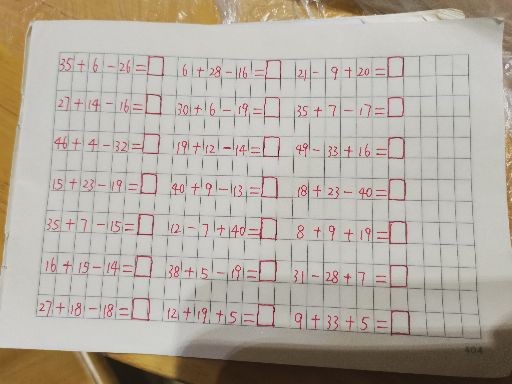 35+6-26=□ 6+28-16=□ 21-9+20=□
27+14-16=□ 30+6-19=□ 35+7-17=□
46+4-32=□ 19+12-14=□ 49-33+16=□
15+23-19=□ 40+9-13=□ 18+23-40=□
35+7-15=□ 12-7+40=□ 8+9+19=□
16+15-14=□ 38+5-19=□ 31-28+7=□
27+18-18=□ 12+19+5=□ 9+33+5=□
404